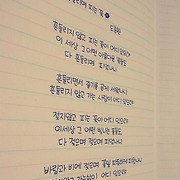 흔들리며 피는 꽃
도종환
흔들리지 않고 피는 꽃이 어디 있으랴
이 세상 그 어떤 아름다운 꽃들도
다 흔들리며 피었나니
흔들리면서 줄기를 곧게 세웠나니
흔들리지 않고 가는 사랑이 어디 있으랴
젖지 않고 피는 꽃이 어디 있으랴
이 세상 그 어떤 빛나는 꽃들도
다 젖으며 젖으며 피었나니
바람과 비에 젖으며 꽃잎 따뜻하게 피웠나니